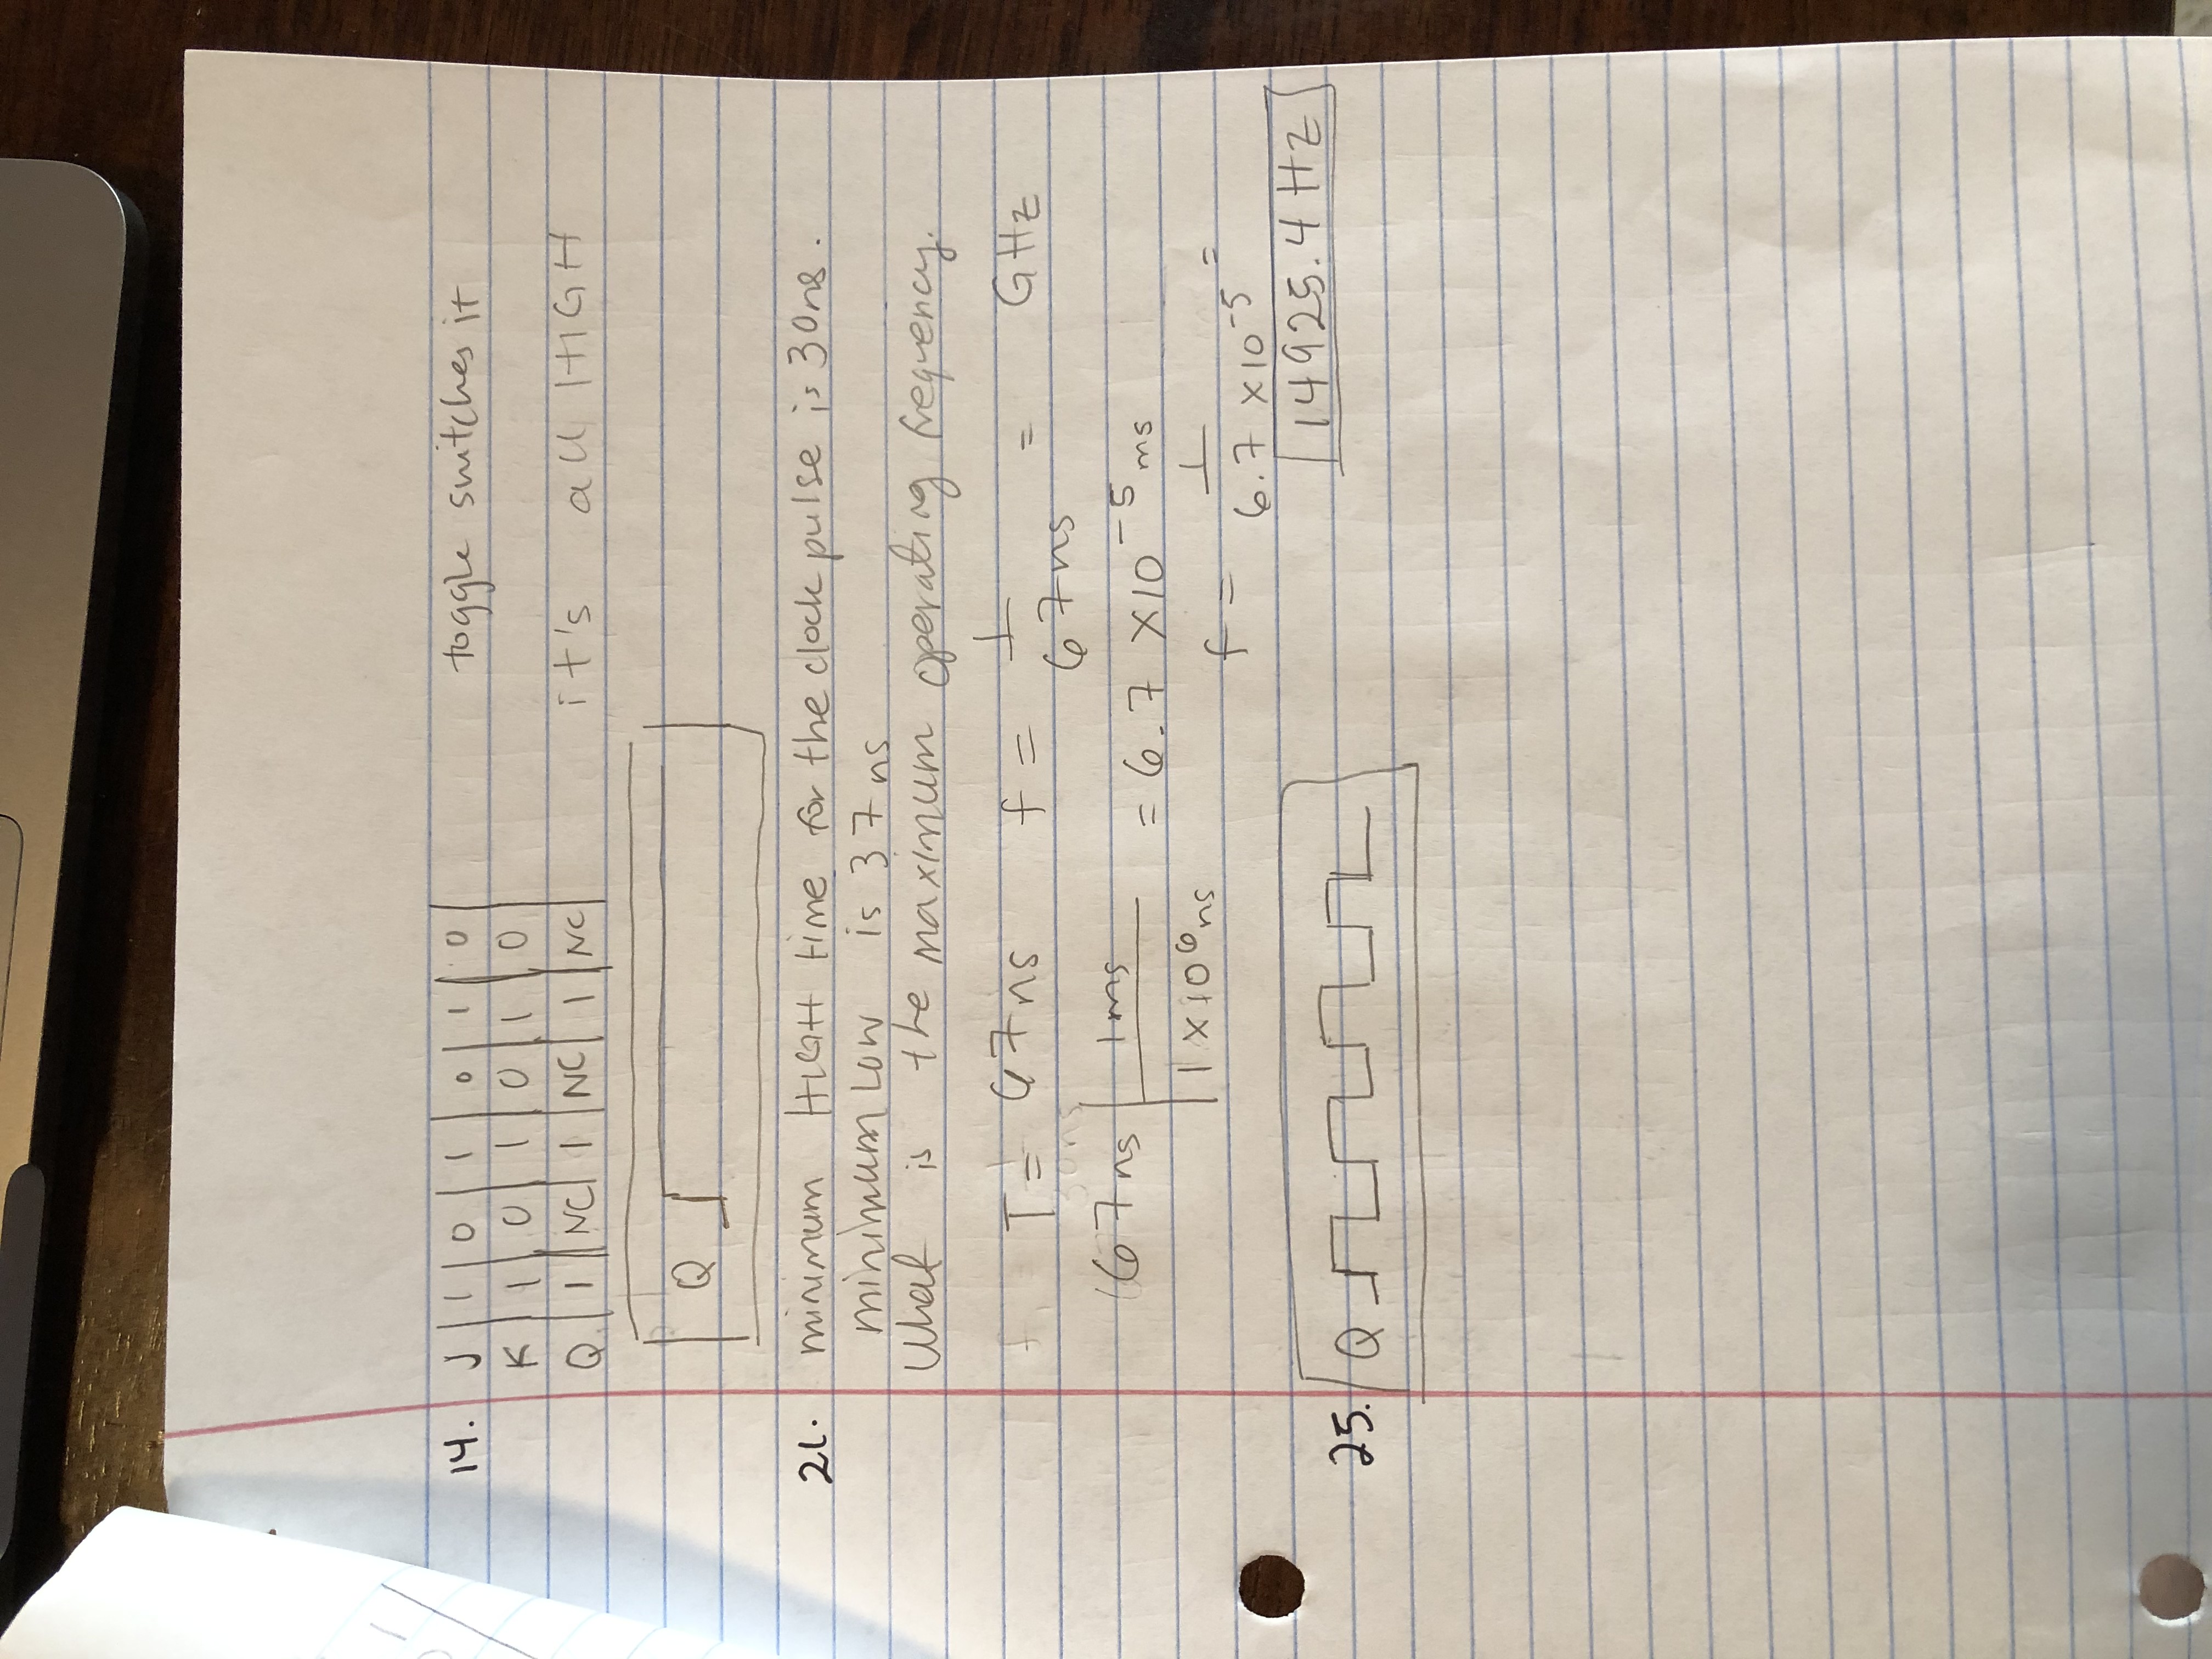 14. J | 1 | 0 | 1 | 0 | 1 | 0 | toggle switches it
K | 1 | 0 | 1 | 0 | 1 | 0
Q | 1 | NC | 1 | NC | 1 | NC | it's all HIGH
Q
21. minimum HIGH time for the clock pulse is 30ns.
minimum Low is 37ns
What is the maximum operating frequency.
T = 67ns f = 1/67ns = GHz
67ns | 1ms / 1×10⁶ns = 6.7 ×10⁻⁵ ms
f = 1/6.7 ×10⁻⁵ =
14925.4 Hz
25. Q